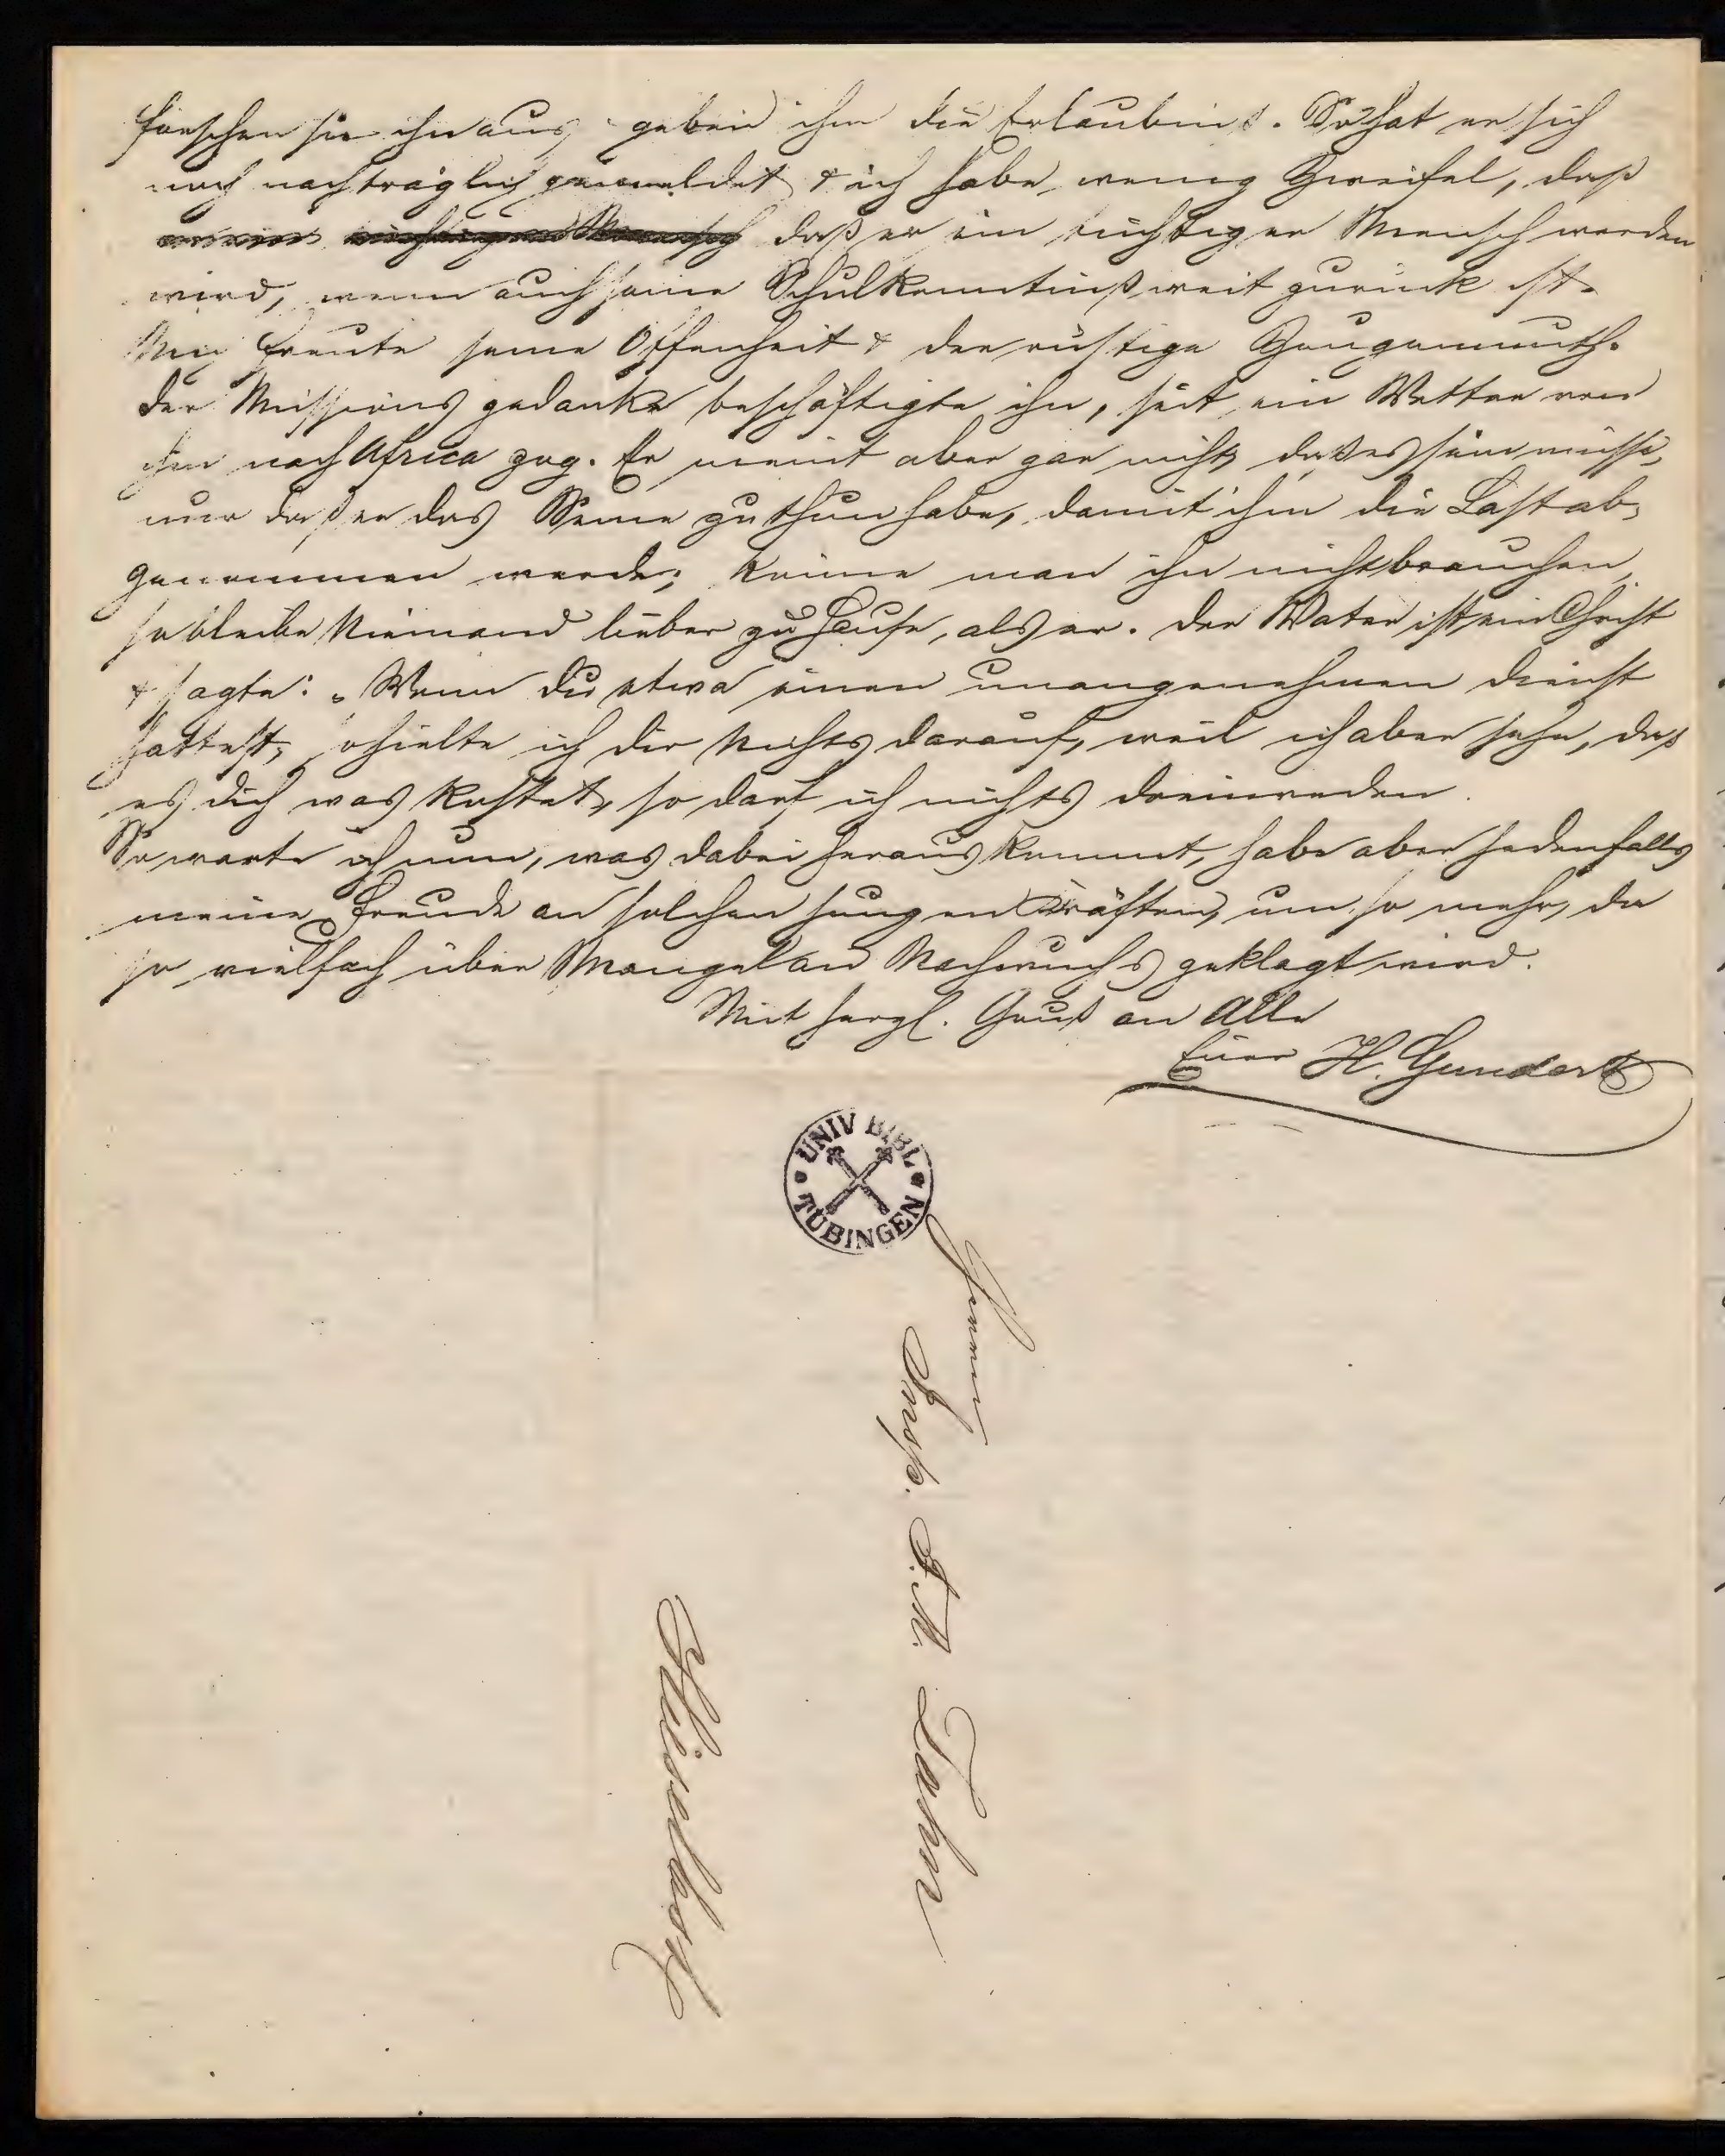 forschen sie ihn aus, geben ihm die Erlaubniß. So hat er sich
noch nachträglich gemeldet & ich habe wenig Zweifel, daß
daß er ein tüchtiger Mensch werden
wird, wenn auch seine Schulkenntniß weit zurück ist.
Mich freute seine Offenheit & der rüstige Zeugenmuth.
Der Missionsgedanke beschäftigte ihn, seit ein Vetter von
ihm nach Africa zog. Er meint aber gar nicht, daß es sein müsse,
nur daß er das Seine zu thun habe, damit ihm die Last ab-
genommen werde; könne man ihn nicht brauchen,
so bleibe Niemand lieber zu Hause, als er. Der Vater ist ein Christ
& sagte: „Wenn du etwa einen unangenehmen Dienst
hattest, so hielte ich dir Nichts darauf, weil ich aber sehe, daß
es dich was kostet, so darf ich nichts dreinreden.
So warte ich nun, was dabei herauskommt, habe aber jedenfalls
meine Freude an solchen jungen Kräften, um so mehr, da
so vielfach über Mangel an Nachwuchs geklagt wird.
Mit herzl. Gruß an Alle
Euer H. Gundert
UNIV BIBL
TÜBINGEN
Herrn
Insp. Z.